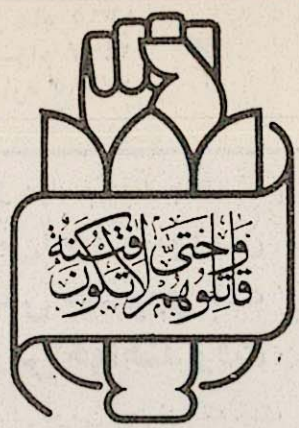 وَقَاتِلُوهُمْ حَتَّى لَا تَكُونَ فِتْنَةٌ